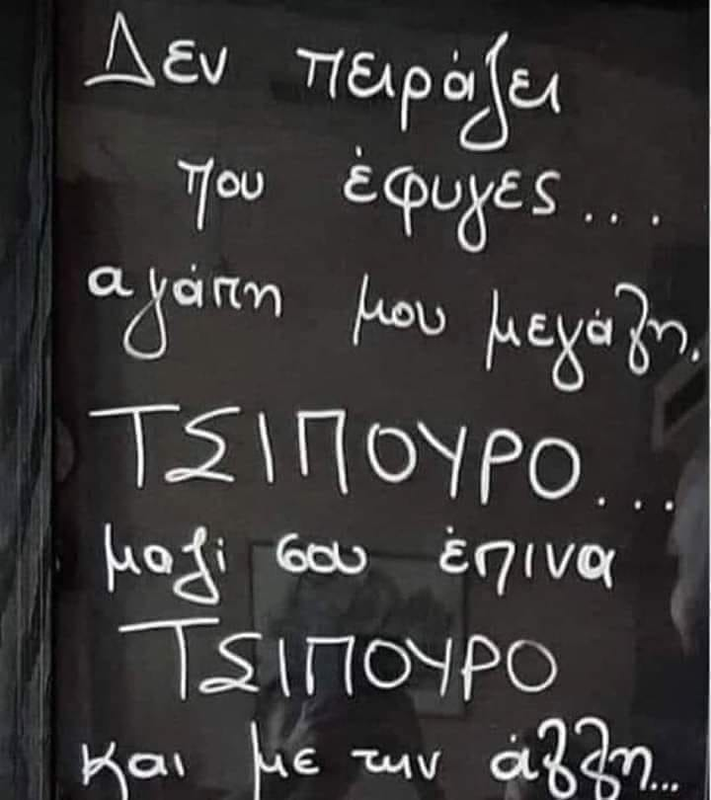 Δεν πειράζει
που έφυγες...
αγάπη μου μεγάλη.
ΤΣΙΠΟΥΡΟ...
μαζί σου έπινα
ΤΣΙΠΟΥΡΟ
και με την άλλη...